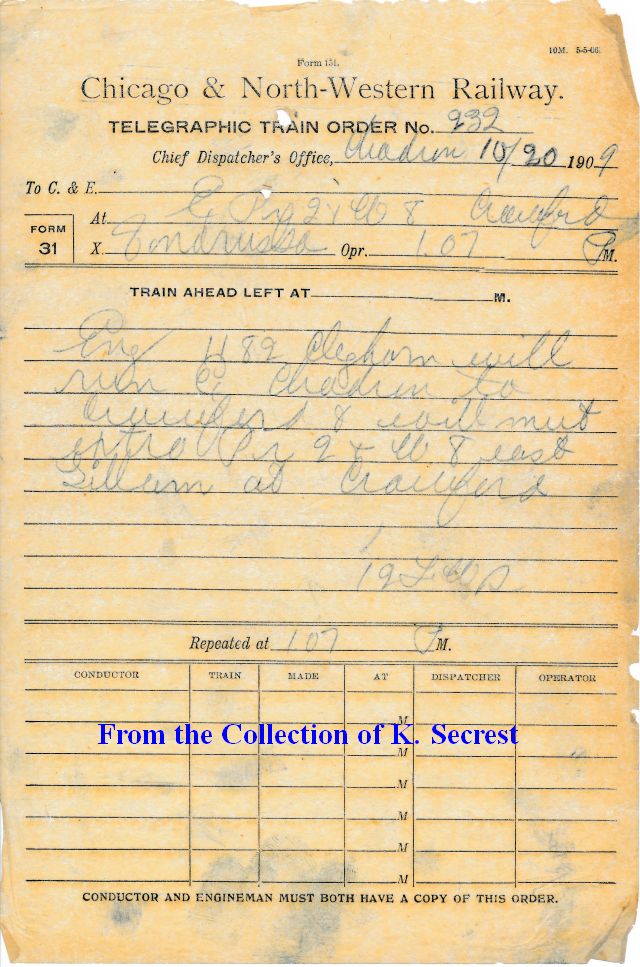 10M. 5-5-06.
Form 151.
Chicago & North-Western Railway.
TELEGRAPHIC TRAIN ORDER No. 232
Chief Dispatcher's Office, Chadron 10/20 1909
To C. & E.
FORM 31
At Crawford
X Opr. 1.07 P M.
TRAIN AHEAD LEFT AT M.
Eng 482 Cleghorn will
run Chadron to
Crawford & will meet
extra 2 & 8 east
Gillum at Crawford
Repeated at 107 P M.
CONDUCTOR TRAIN MADE AT DISPATCHER OPERATOR
M
From the Collection of K. Secrest
M
M
M
M
M
CONDUCTOR AND ENGINEMAN MUST BOTH HAVE A COPY OF THIS ORDER.